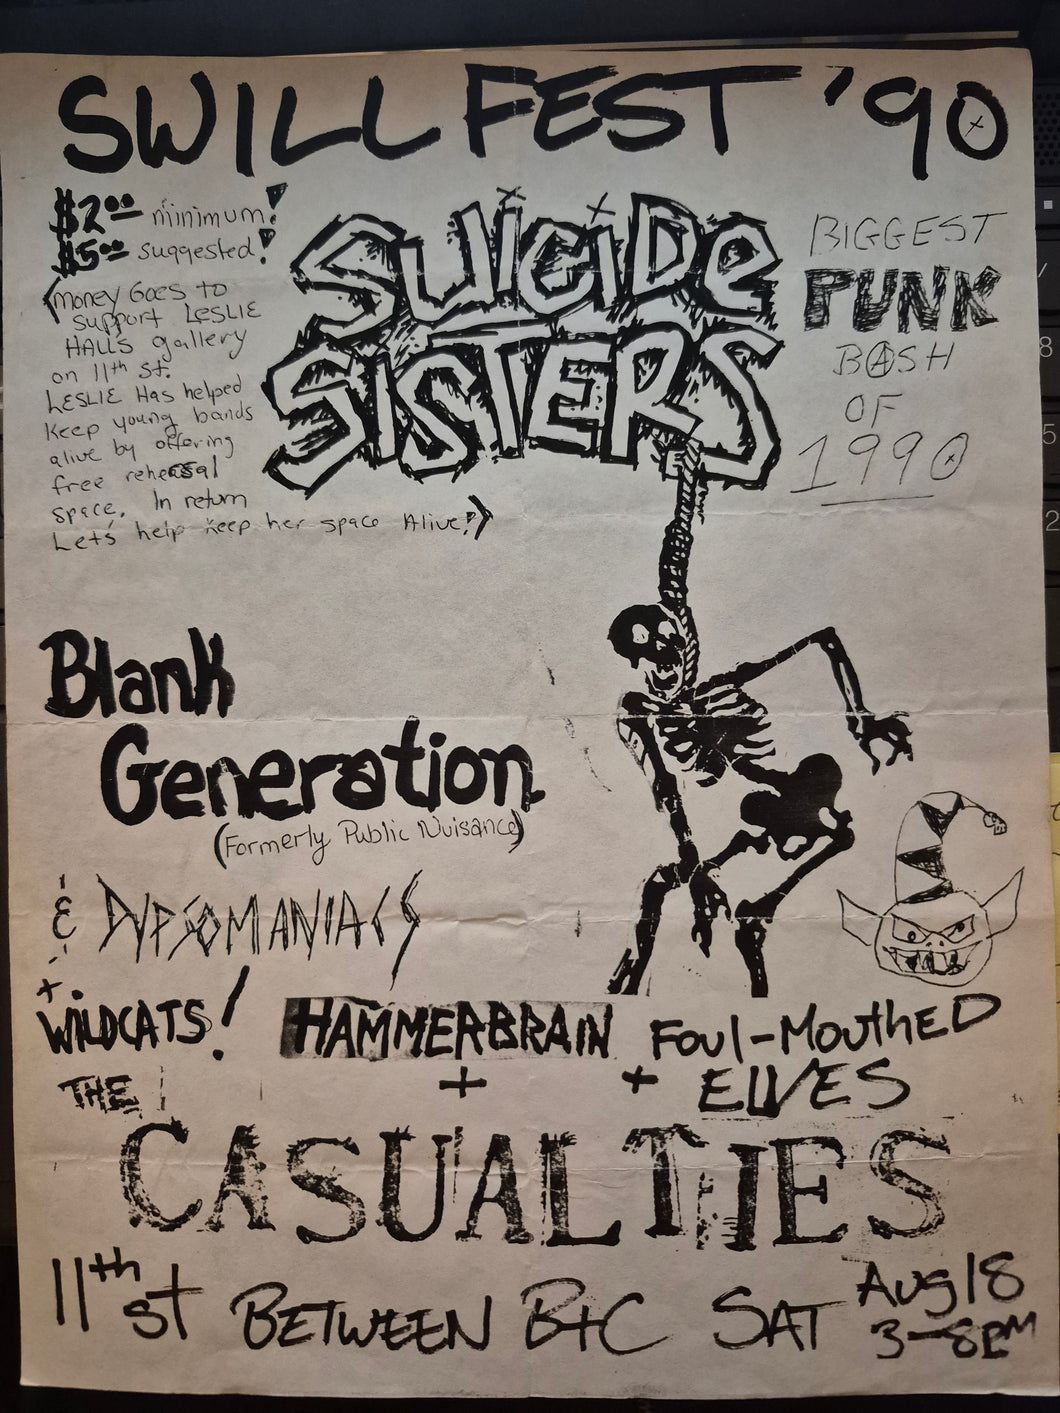 SWILLFEST '90
$2.00 minimum!
$5.00 suggested!
(money Goes to
support LESLIE
HALLS gallery
on 11th St.
LESLIE Has helped
Keep young bands
alive by offering
free rehersal
space. In return
Let's help keep her space Alive!)
SUICIDE
SISTERS
BIGGEST
PUNK
BASH
OF
1990
Blank
Generation
(Formerly Public Nuisance)
& DYPSOMANIACS
+ WILDCATS! HAMMERBRAIN FOUL-MOUTHED
+ + ELVES
THE
CASUALTIES
11th st BETWEEN B+C SAT Aug 18
3-8PM